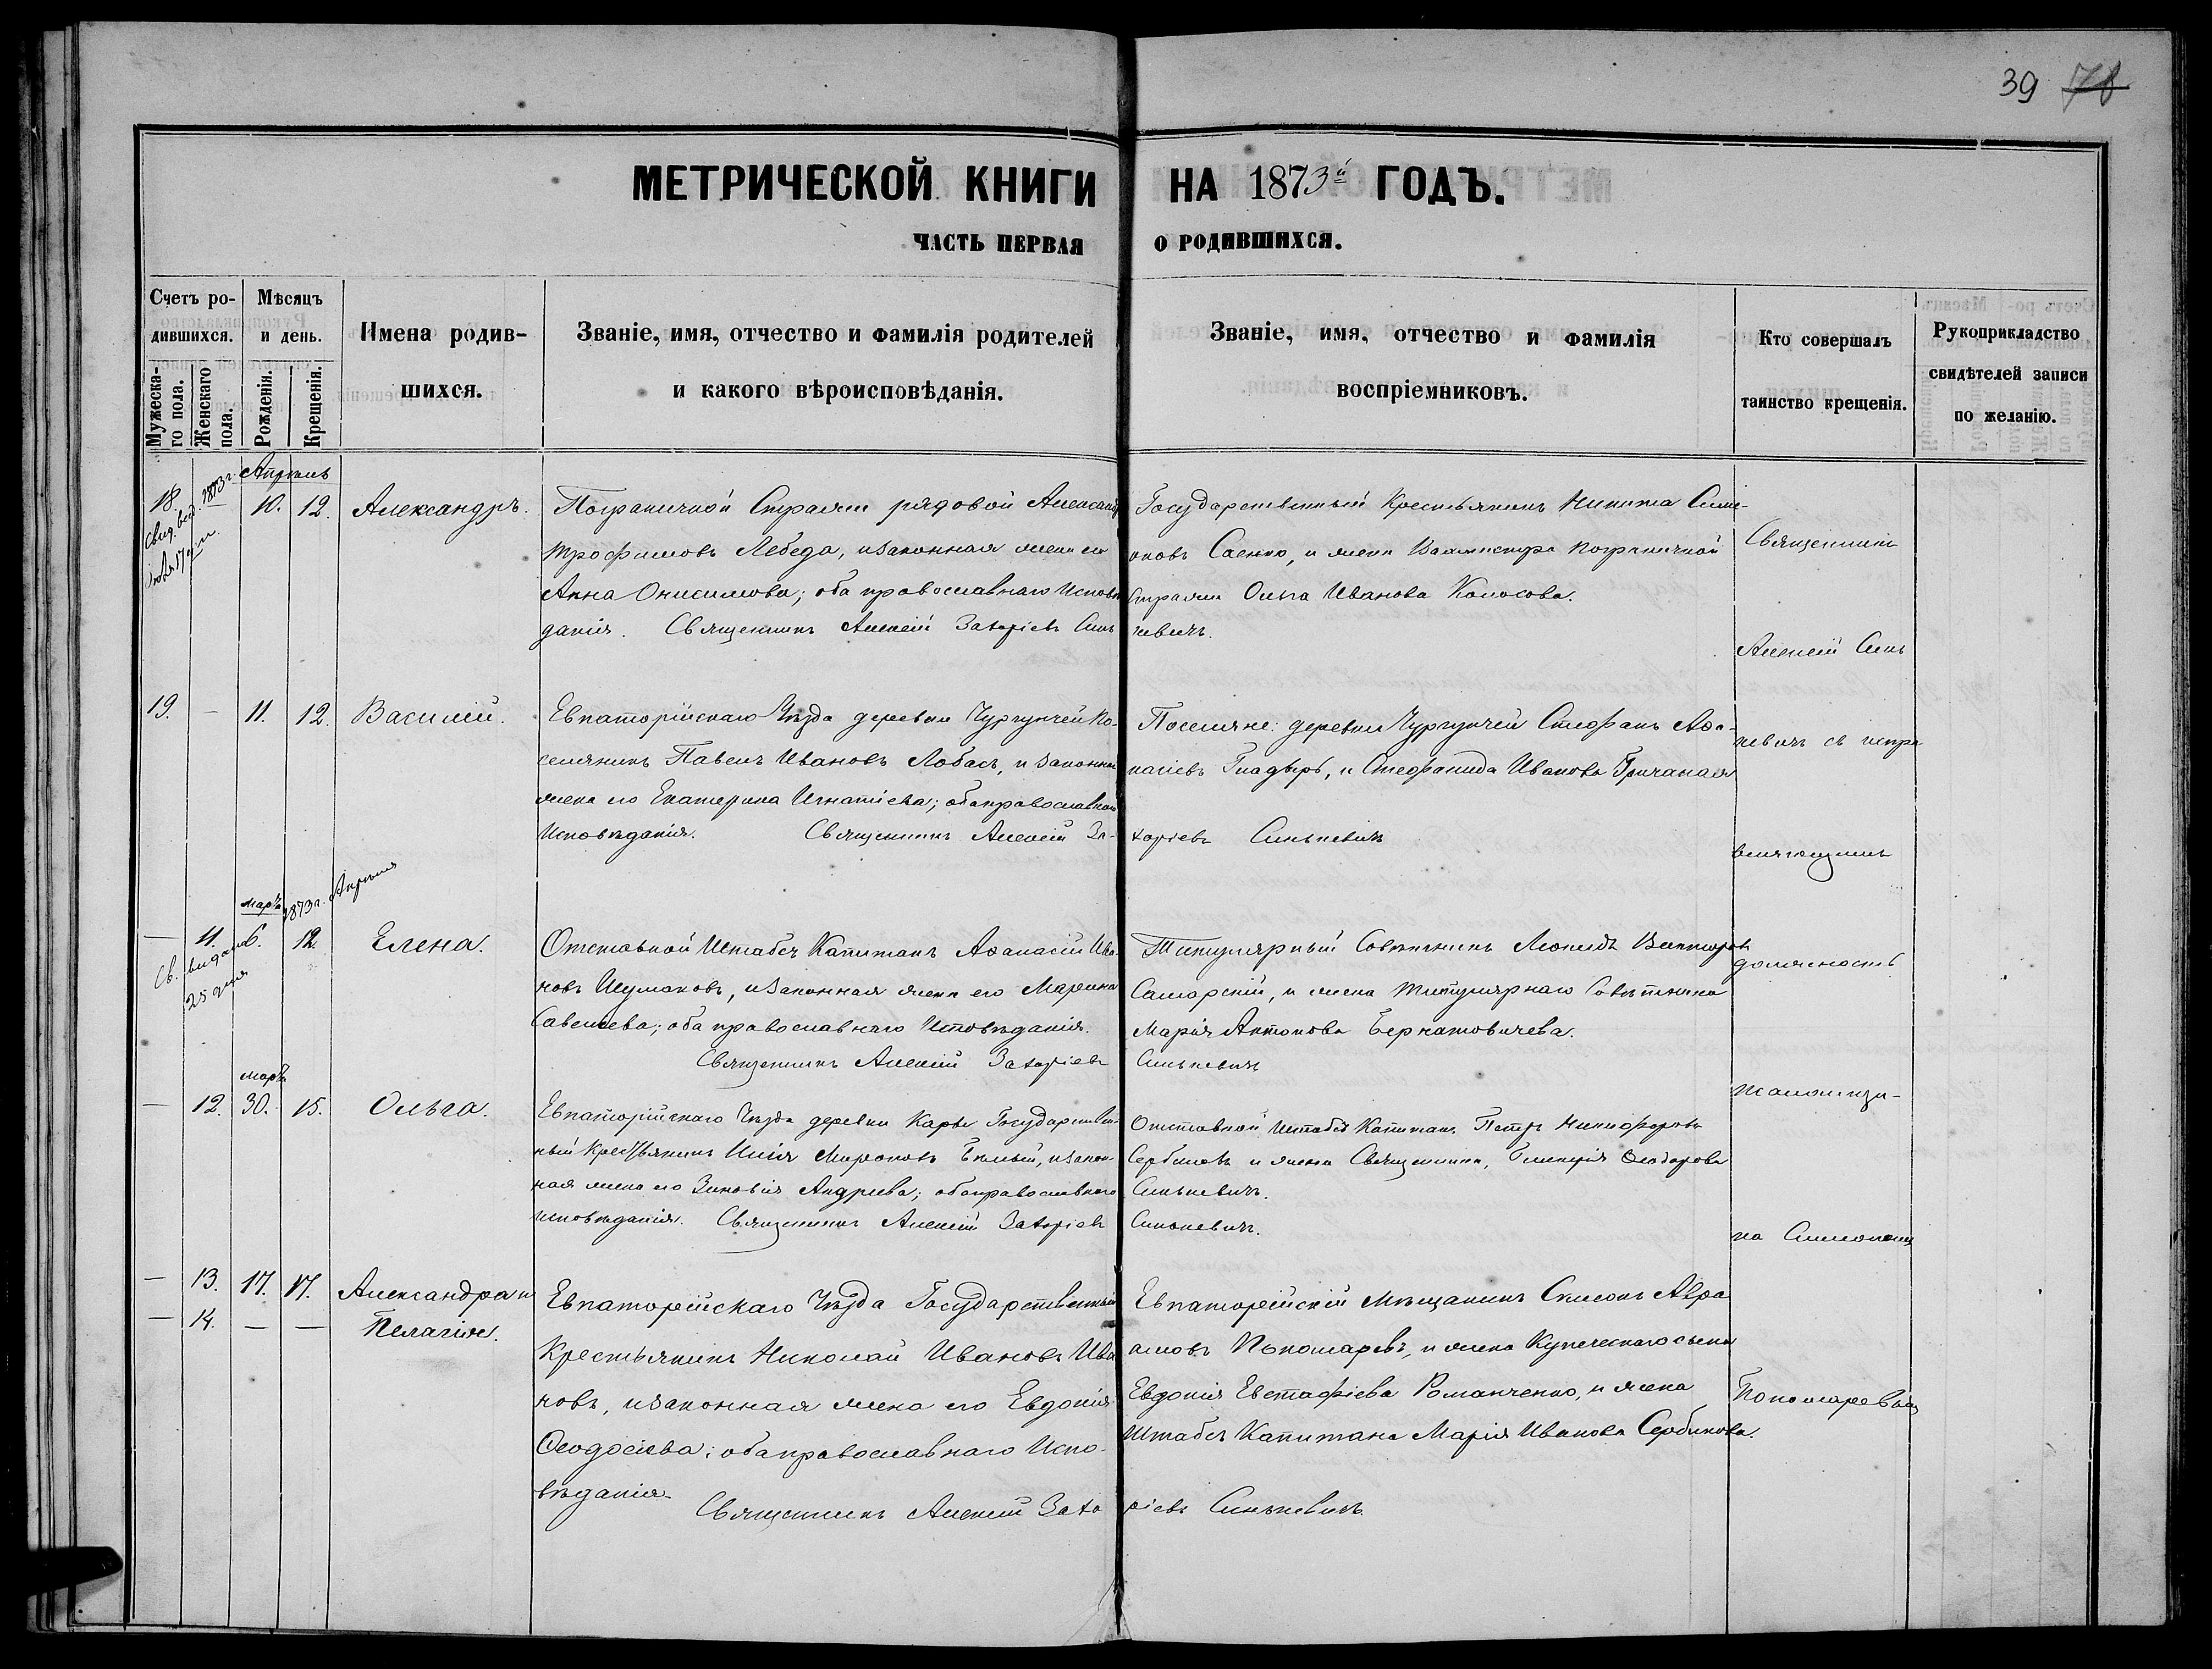 39 78
МЕТРИЧЕСКОЙ КНИГИ НА 1873й ГОДЪ.
ЧАСТЬ ПЕРВАЯ О РОДИВШИХСЯ.
Счетъ ро-
дившихся.
Мужеска-
го пола.
Женскаго
пола.
Мѣсяцъ
и день.
Рожденія.
Крещенія.
Имена родив-
шихся.
Званіе, имя, отчество и фамилія родителей
и какого вѣроисповѣданія.
Званіе, имя, отчество и фамилія
воспріемниковъ.
Кто совершалъ
таинство крещенія.
Рукоприкладство
свидѣтелей записи
по желанію.
Апрѣль
18. — 10. 12. Александръ.
свид. выд. 1873 г.
Пограничной Стражи рядовой Александ
Трофимовъ Лебеда, и законная жена его
Анна Онисимова; оба православнаго Исповѣ
данія. Священникъ Алексій Захаріевъ Синь
Государственный Крестьянинъ Никита Сими-
оновъ Саенко, и жена Вахмистра пограничной
Стражи Ольга Иванова Колосова.
кевичъ.
19. — 11. 12. Василій.
Евпаторійскаго Уѣзда деревни Чургунчей По-
селянинъ Павелъ Ивановъ Лобасъ, и законная
жена его Екатерина Игнатіева; оба православнаго
Исповѣданія. Священникъ Алексій За-
Поселяне: деревни Чургунчей Стефанъ Аѳа-
насіевъ Гладырь, и Стефанида Иванова Гричаная
харіевъ Синькевичъ
Мартъ
— 11. 6. 12. Елена.
Св. выдано 1873 г. Апрѣля
25 дня
Отставной Штабсъ Капитанъ Аѳанасій Ива
новъ Шумаковъ, и законная жена его Марина
Савельева; оба православнаго Исповѣданія.
Священникъ Алексій Захаріевъ
Титулярный Совѣтникъ Леонидъ Викторовъ
Самарскій, и жена Титулярнаго Совѣтника
Марія Антонова Бернатовичева.
Синькевичъ
Мартъ
— 12. 30. 15. Ольга.
Евпаторійскаго Уѣзда деревни Кары Государствен-
ный Крестьянинъ Илія Мироновъ Бѣлый, и закон-
ная жена его Зиновія Андреева; оба православнаго
исповѣданія. Священникъ Алексій Захаріевъ
Отставной Штабсъ Капитанъ Петръ Никифоровъ
Сербиновъ и жена Священника, Гликерія Ѳеодорова
Синькевичъ.
Синькевичъ.
— 13. 17. 17. Александра и
— 14. — — Пелагія.
Евпаторійскаго Уѣзда Государственный
Крестьянинъ Николай Ивановъ Ива
новъ, и законная жена его Евдокія
Ѳеодосіева; оба православнаго Испо-
вѣданія.
Священникъ Алексій Заха
Евпаторійскій Мѣщанинъ Симеонъ Авра
амовъ Пономаревъ, и жена Купеческаго сына
Евдокія Евстафіева Романченко, и жена
Штабсъ Капитана Марія Иванова Сербинова.
ріевъ Синькевичъ.
Священникъ
Алексій Синь
кевичъ съ испра
вляющимъ
должность
псаломщи-
ка Симеономъ
Пономаревымъ